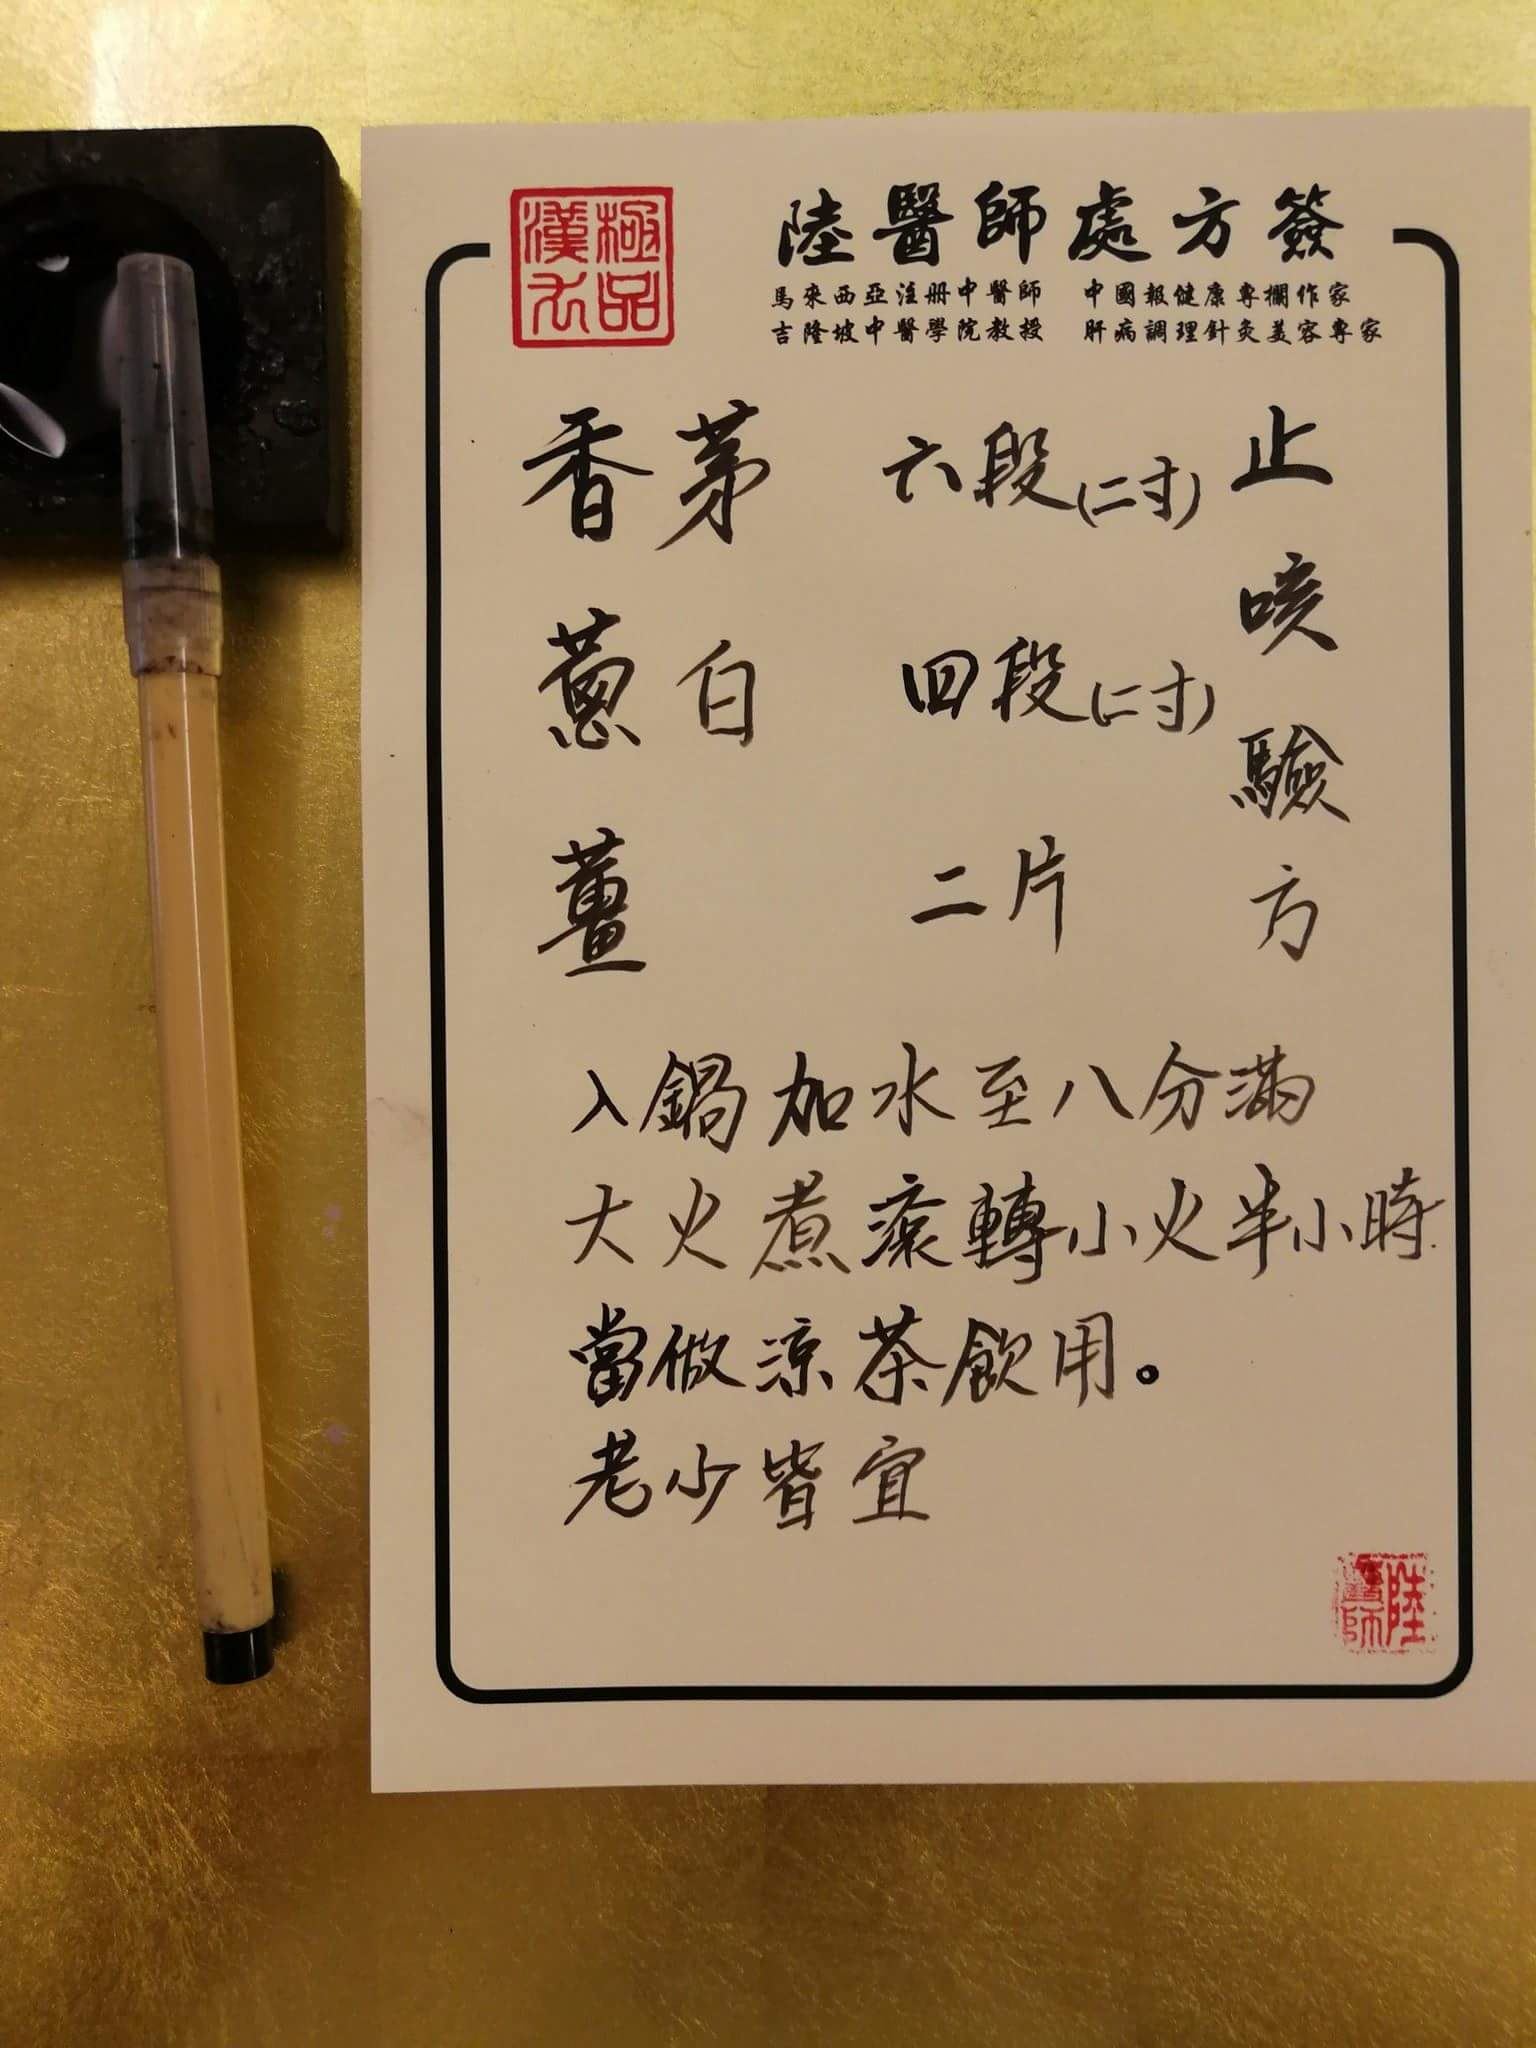 極品漢方
陸醫師處方簽
馬來西亞注册中醫師 中國報健康專欄作家
吉隆坡中醫學院教授 肝病調理針灸美容專家
止咳驗方
香茅 六段(二寸)
蔥白 四段(二寸)
薑 二片
入鍋加水至八分滿
大火煮滾轉小火半小時
當做涼茶飲用。
老少皆宜
陸醫師